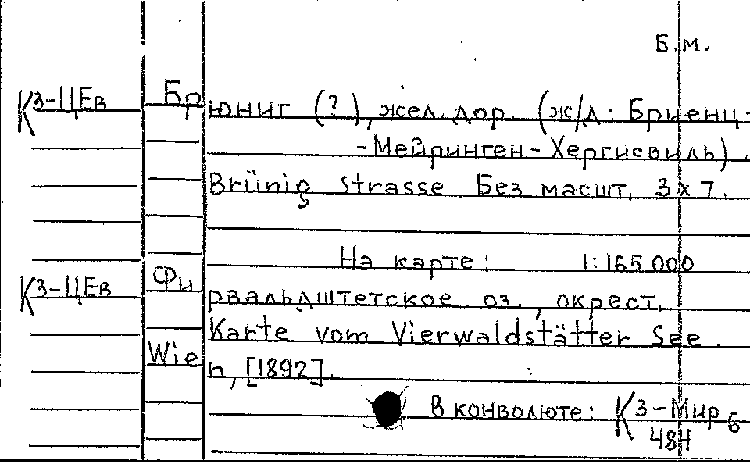 Б.м.
К З-ЦЕв Брюниг (?), жел. дор. (ж/д: Бриенц-
-Мейринген-Хергисвиль).
Brünig Strasse Без масшт. 3x7.
На карте: 1:165 000
К З-ЦЕв Фирвальдштетское оз., окрест.
Karte vom Vierwaldstätter See.
Wien, [1892].
В конволюте: К З-Мир 6
484